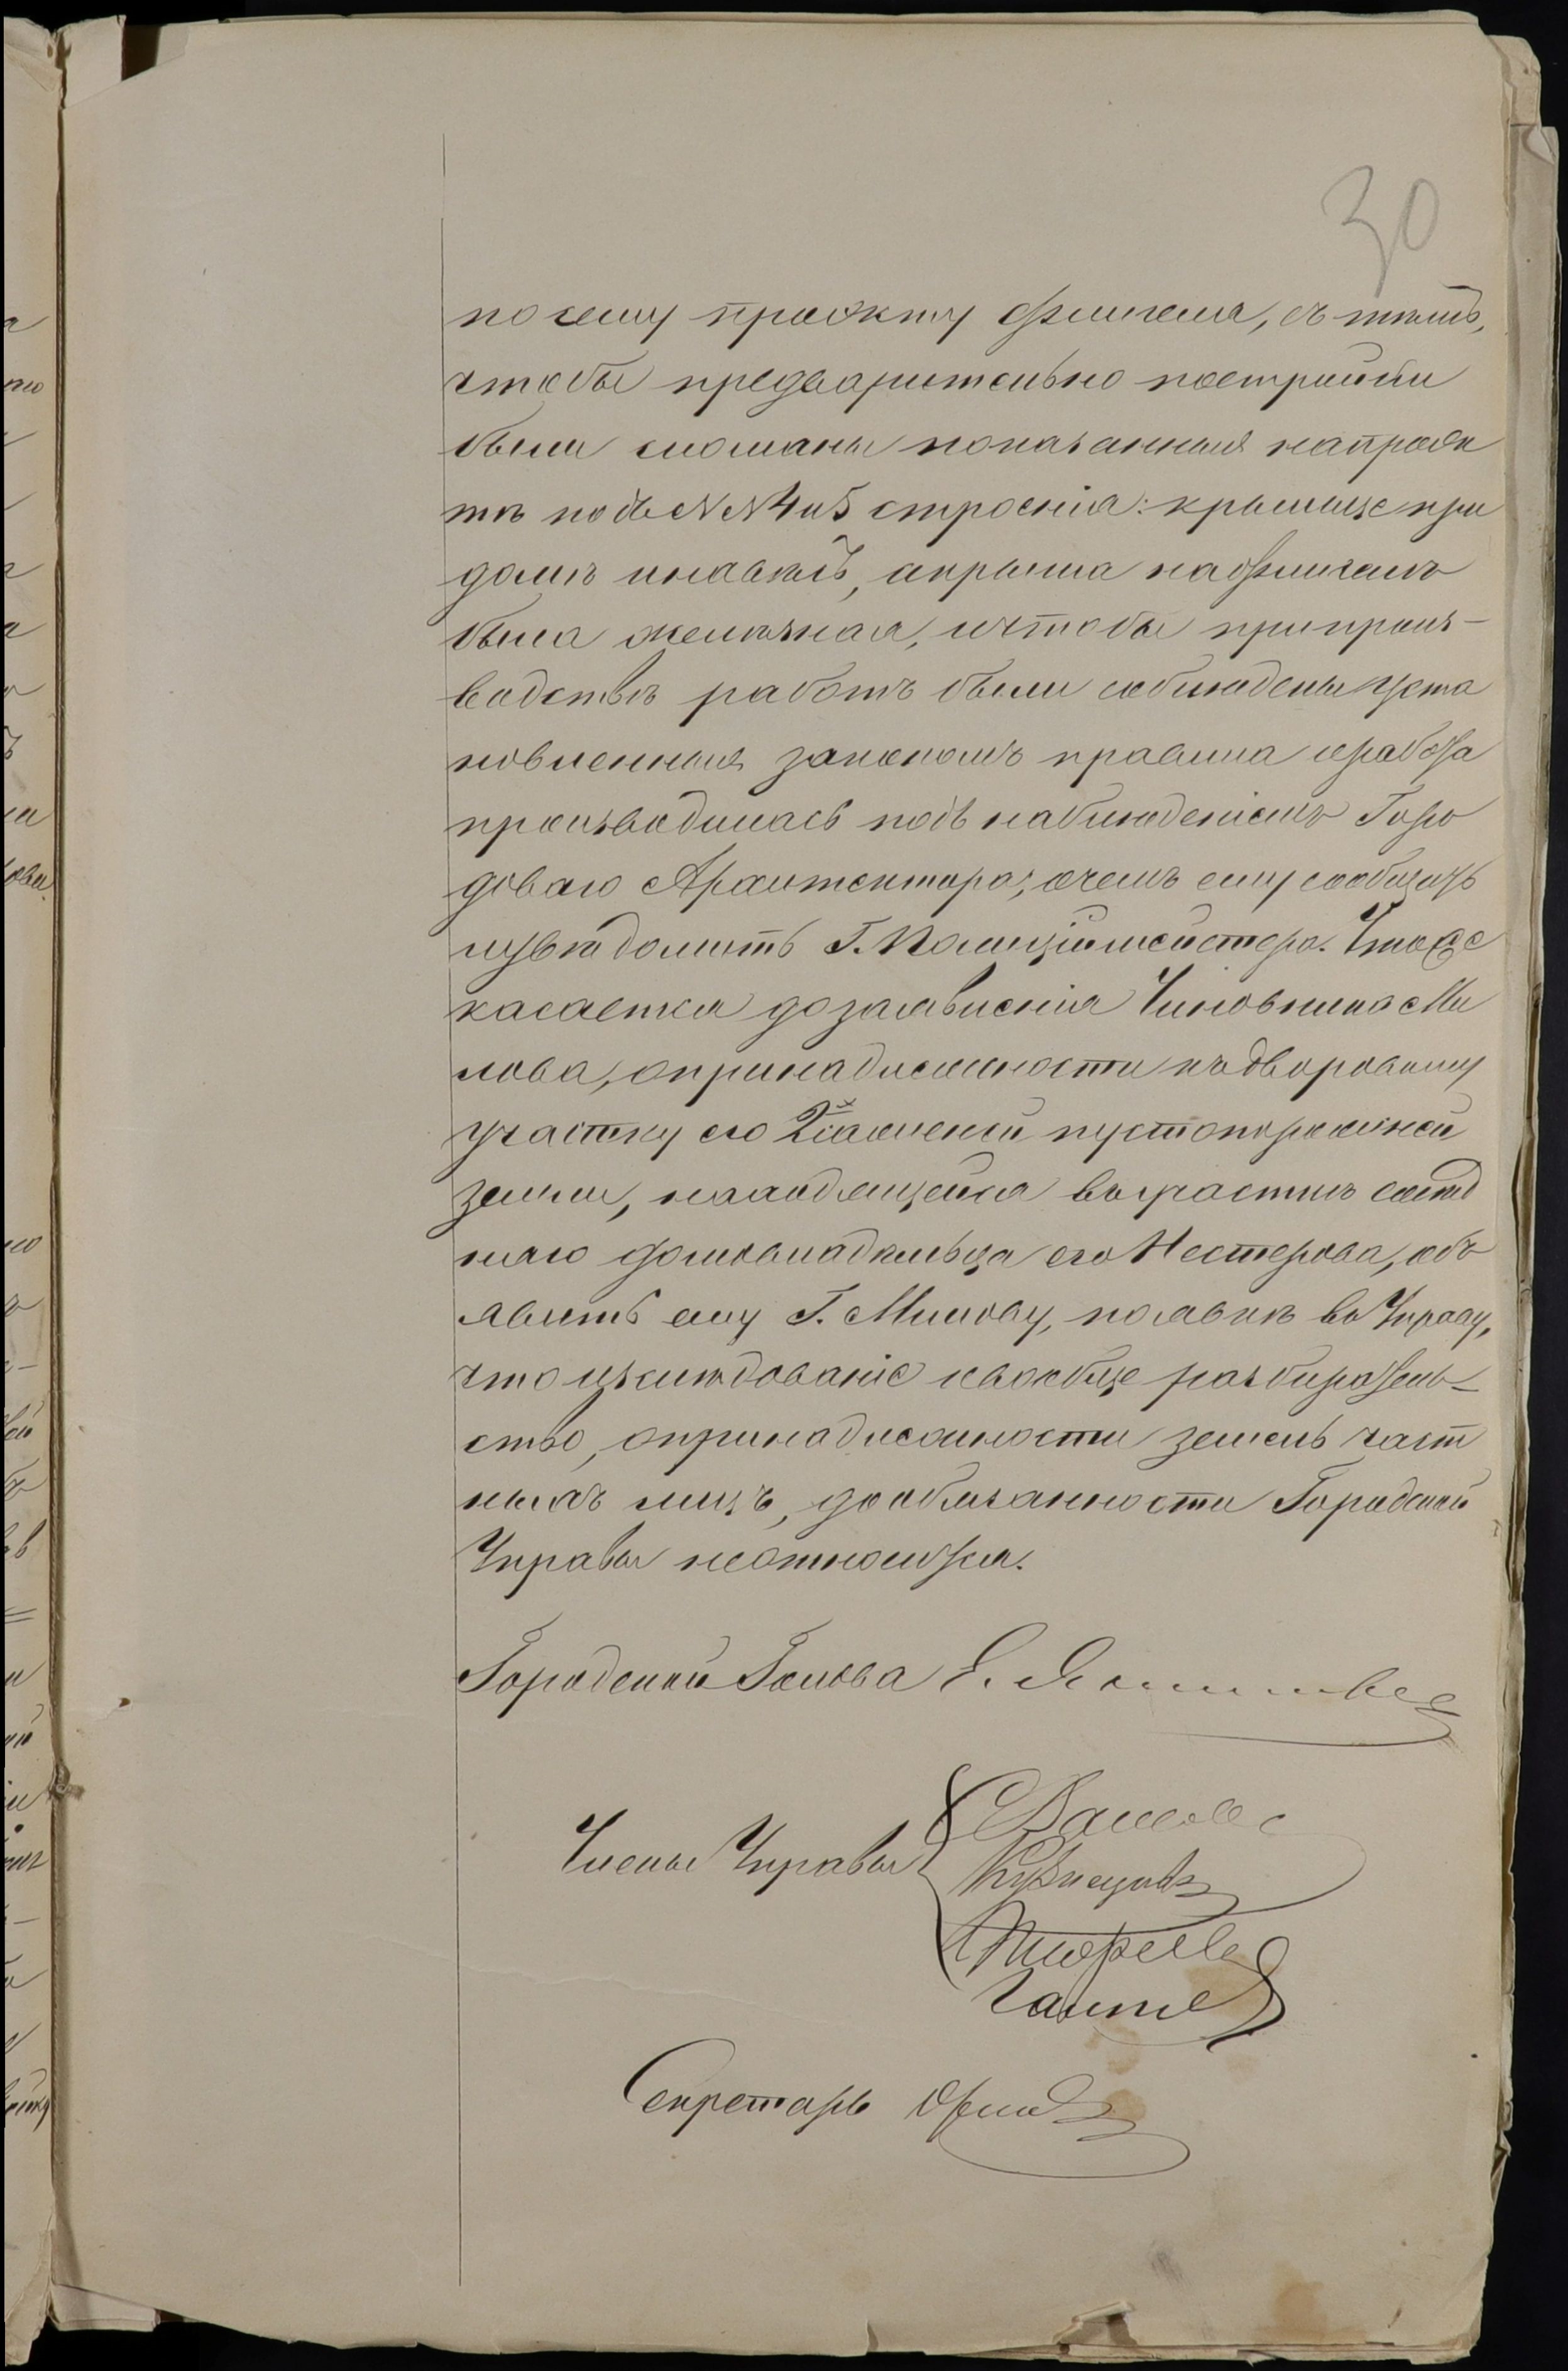 30
по сему проэкту флигеля, съ тѣмъ,
чтобы предварительно постройки
были сломаны показанныя на проэк
тѣ подъ №№ 4 и 5 строенія: крыльце при
домѣ и навѣсъ, а крыша на флигелѣ
была желѣзная, и чтобы при произ-
водствѣ работъ были соблюдены уста
новленныя закономъ правила и работа
производилась подъ наблюденіемъ Горо
доваго Архитектора; о чемъ ему сообщить
и увѣдомить Г. Полиціймейстера. Что же
касается до заявленія Чиновника Ми
лова, о принадлежности къ дворовому
участку его 2х саженей пустопорожней
земли, находящейся въ участкѣ сосѣд
няго домовладѣльца его Нестерова, объ
явить ему Г. Милову, по явкѣ въ Управу,
что изслѣдованіе и вообще разбиратель-
ство, о принадлежности земель част
ныхъ лицъ, до обязанности Городской
Управы не относится.
Городской Голова Е.
Члены Управы
Кузнецовъ
Секретарь